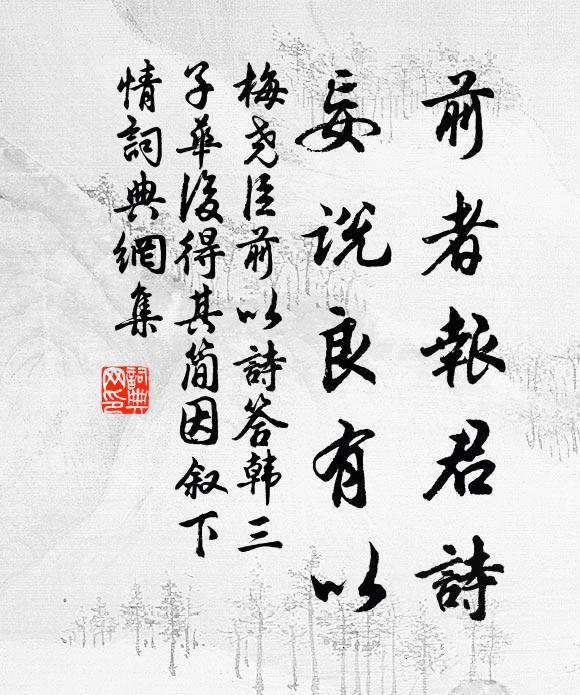 前者報君詩
妄說良有以
梅堯臣前以詩答韩三
子華後得其简因叙下
情詞典網集
詞典
网印